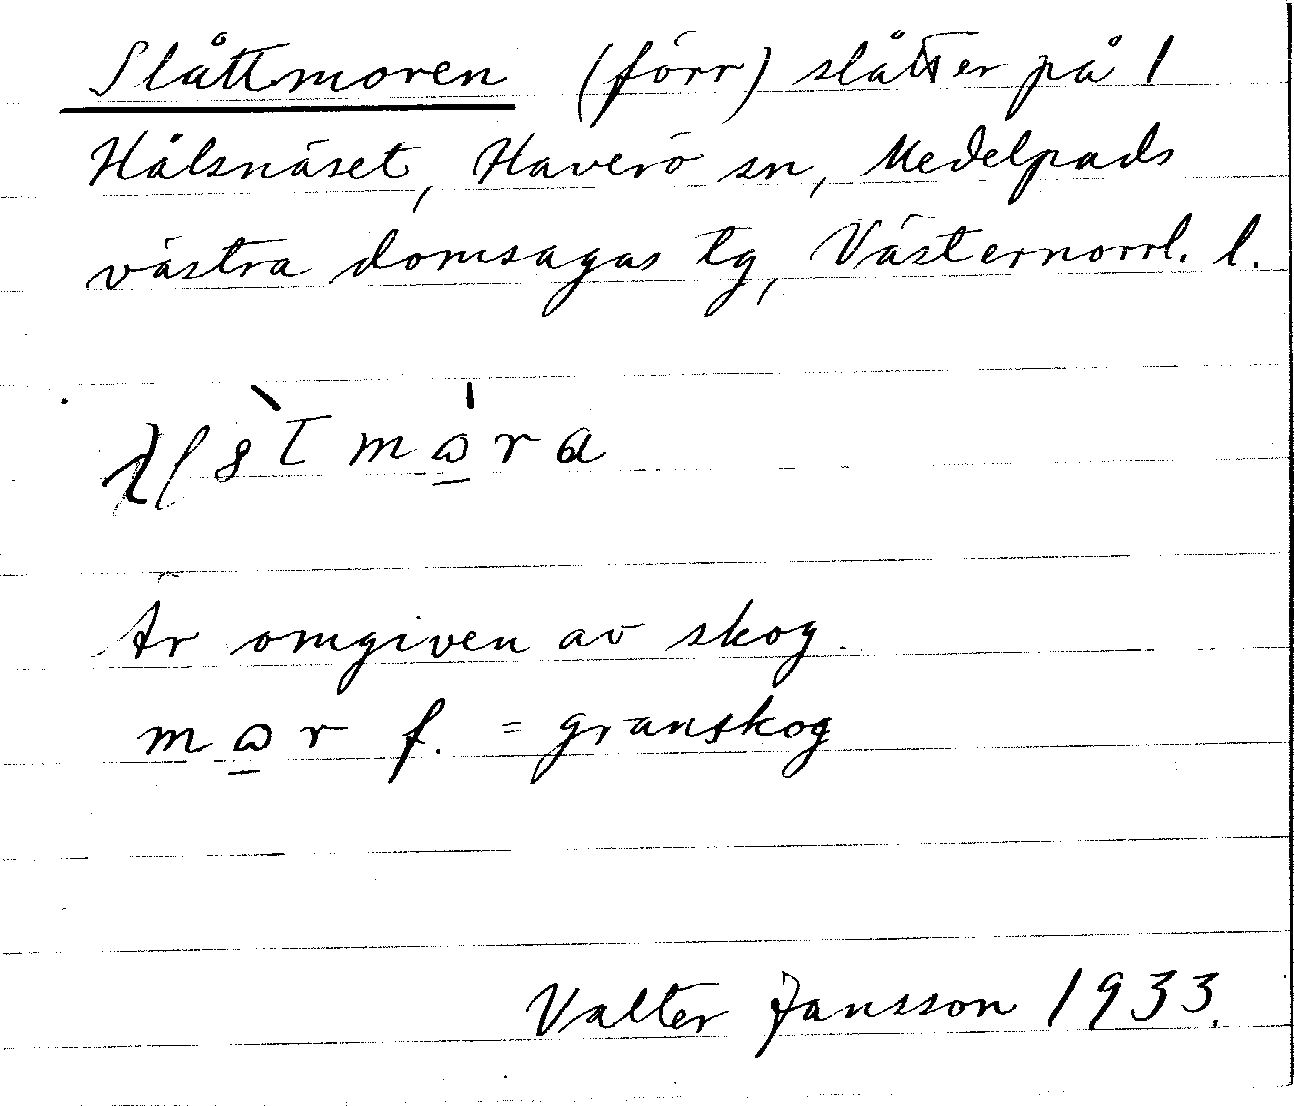 Slåttmoren (förr) slåtter på 1
Hålsnäset, Haverö sn, Medelpads
västra domsagas tg, Västernorrl. l.
Är omgiven av skog.
f. = granskog
Valter Jansson 1933.